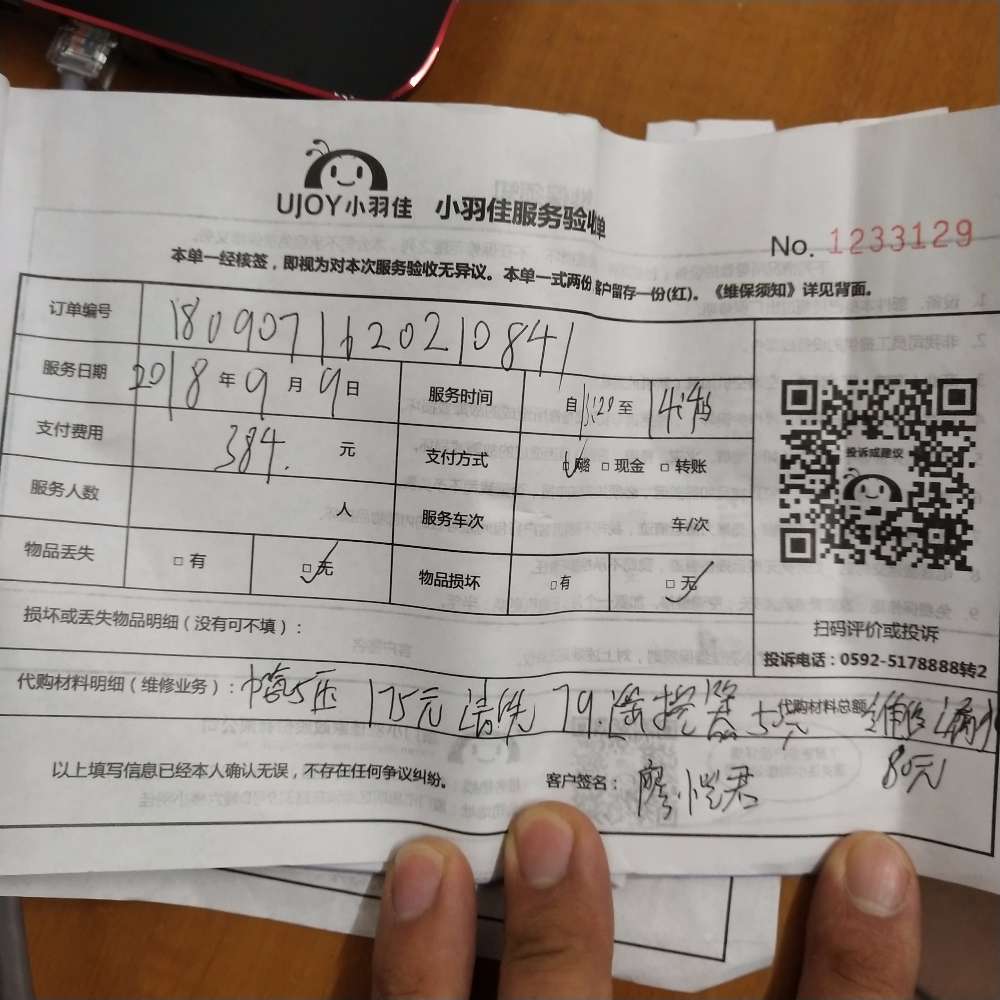 UJOY小羽佳 小羽佳服务验收单
No. 1233129
本单一经核签，即视为对本次服务验收无异议。本单一式两份 客户留存一份(红)。《维保须知》详见背面。
订单编号 1809071620210841
服务日期 2018年9月9日 服务时间 自 至
支付费用 384. 元 支付方式 □ □现金 □转账
服务人数 人 服务车次 车/次
物品丢失 □有 □无 物品损坏 □有 □无
投诉或建议
扫码评价或投诉
投诉电话：0592-5178888转2
损坏或丢失物品明细（没有可不填）：
代购材料明细（维修业务）： 175元 清洗 79 遥控器 55元 代购材料总额
80元
以上填写信息已经本人确认无误，不存在任何争议纠纷。 客户签名：